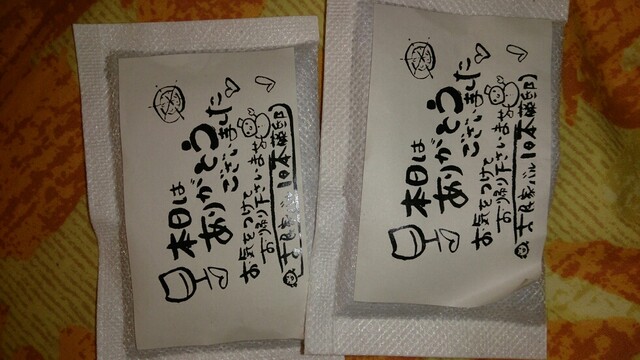 本日は
ありがとう
ございました
お気をつけて
お帰り下さいませ
バル 日本藤郎
本日は
ありがとう
ございました
お気をつけて
お帰り下さいませ
バル 日本藤郎